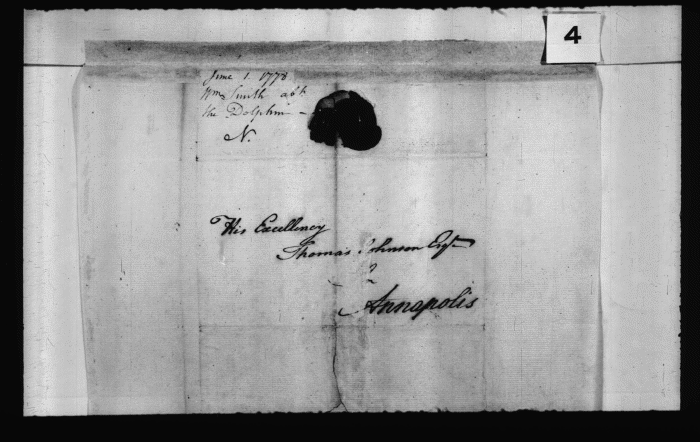 4
June 1. 1778
Wm Smith abt
the Dolphin -
N.
His Excellency
Thomas Johnson Esqr
Annapolis